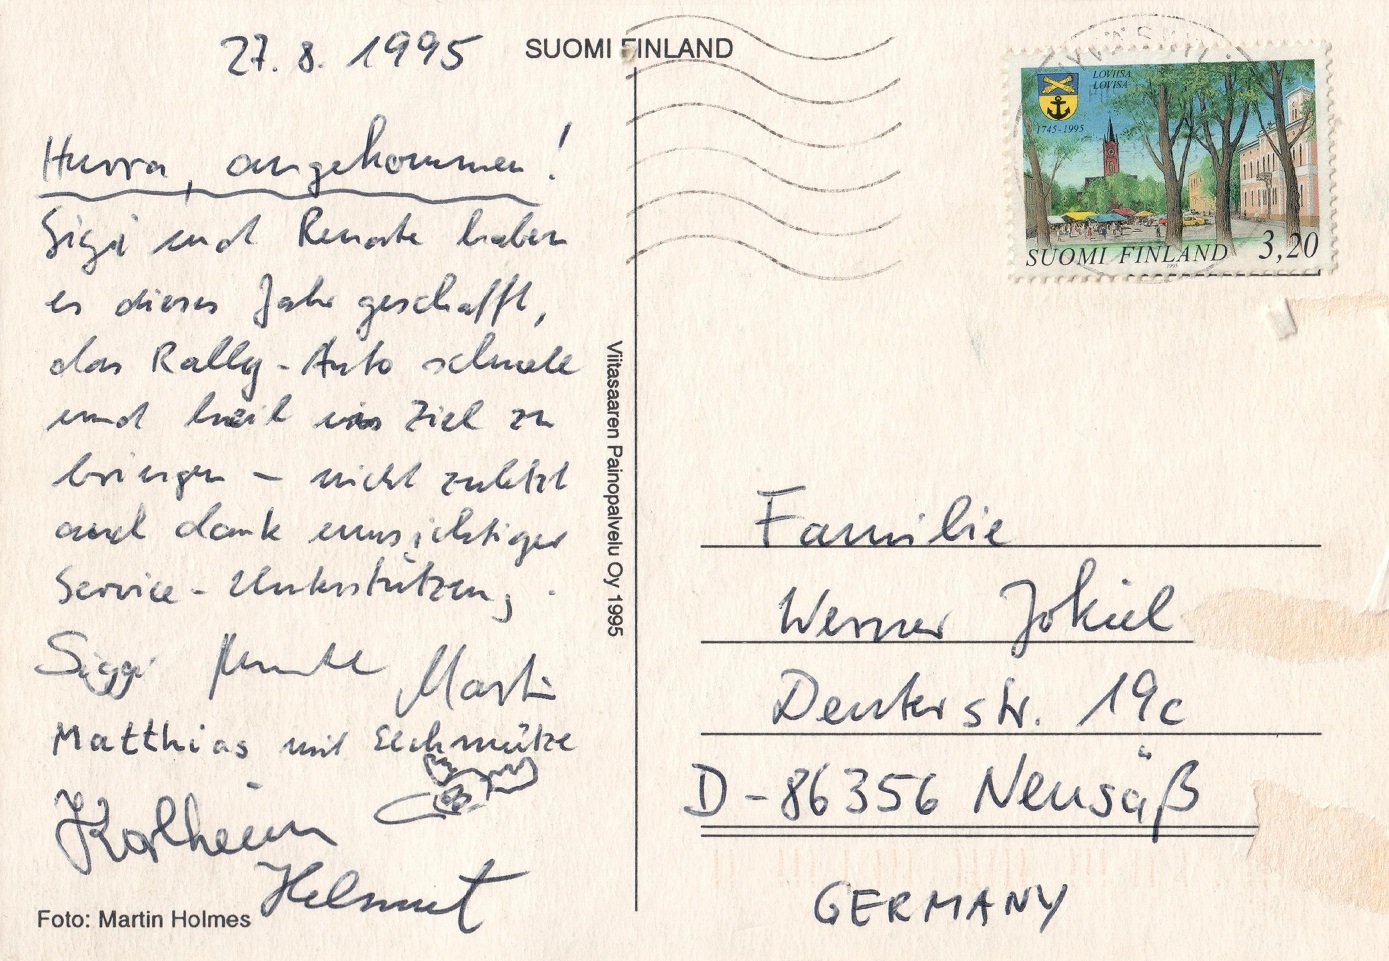 27. 8. 1995
SUOMI FINLAND
Hurra, angekommen!
Sigi und Renate haben
es dieses Jahr geschafft,
das Rally-Auto schnell
und heil ins Ziel zu
bringen – nicht zuletzt
auch dank umsichtiger
Service-Unterstützung.
Siggi Renate Martin
Matthias mit Elchmütze
Karlheinz
Helmut
Foto: Martin Holmes
Viitasaaren Painopalvelu Oy 1995
LOVIISA
LOVISA
1745-1995
SUOMI FINLAND 3,20
Familie
Werner Jokiel
Deuterstr. 19c
D-86356 Neusäß
GERMANY